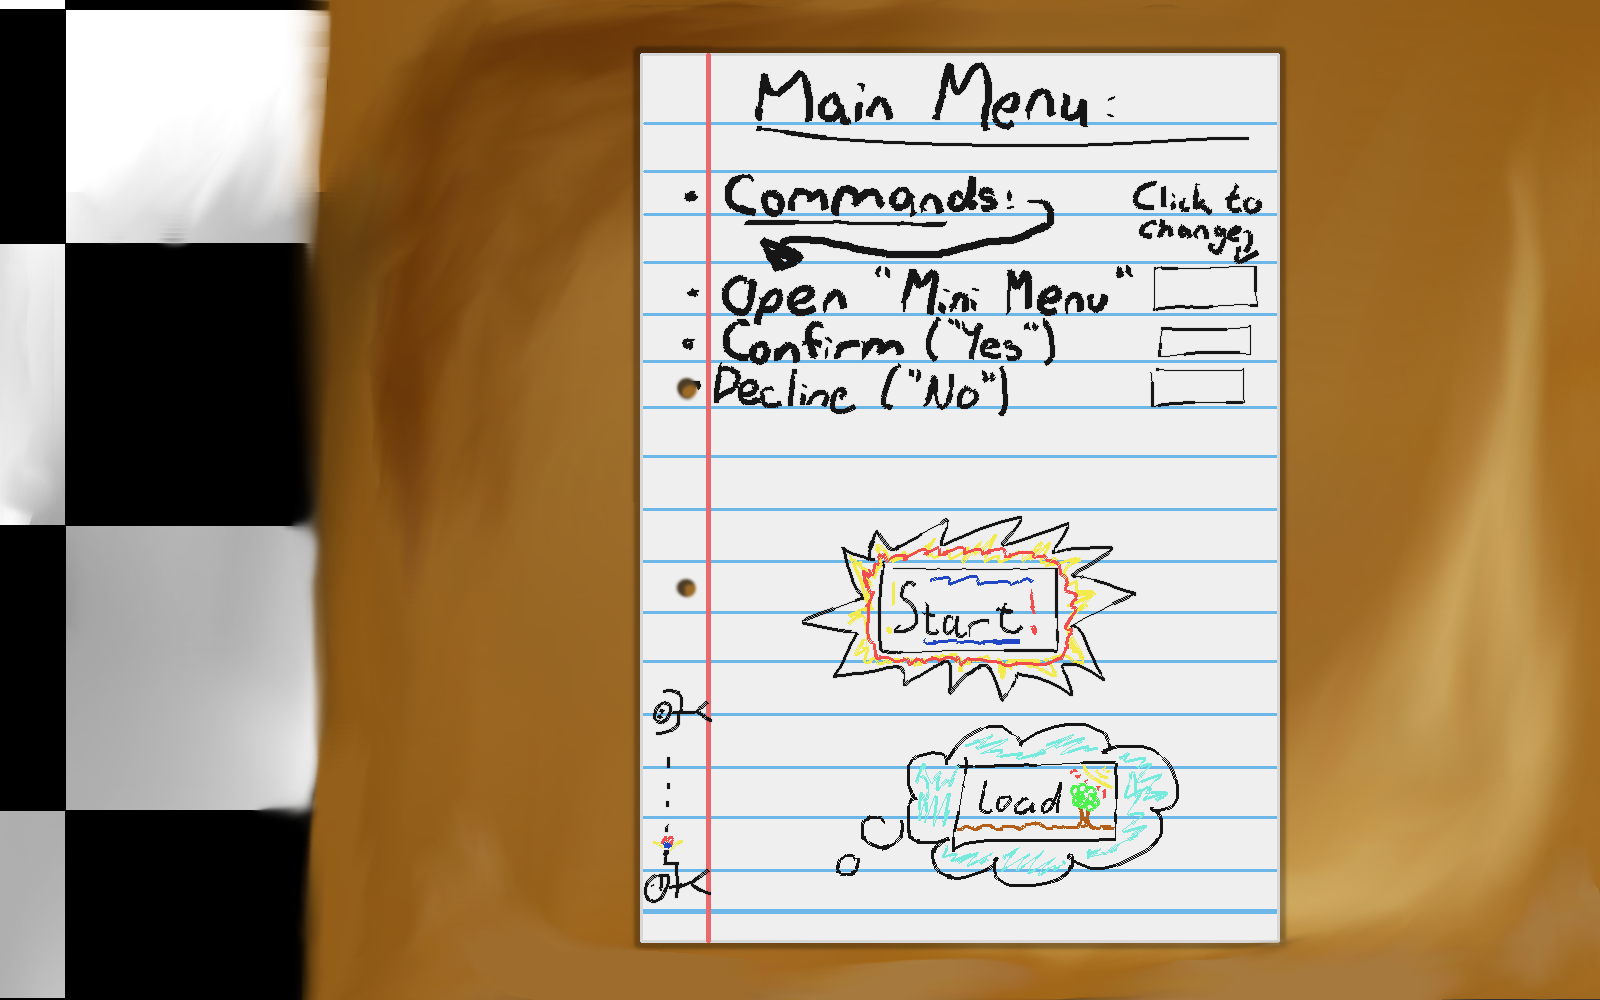 Main Menu:
• Commands:
Click to
change
• Open "Mini Menu"
• Confirm ("Yes")
• Decline ("No")
! Start !
Load